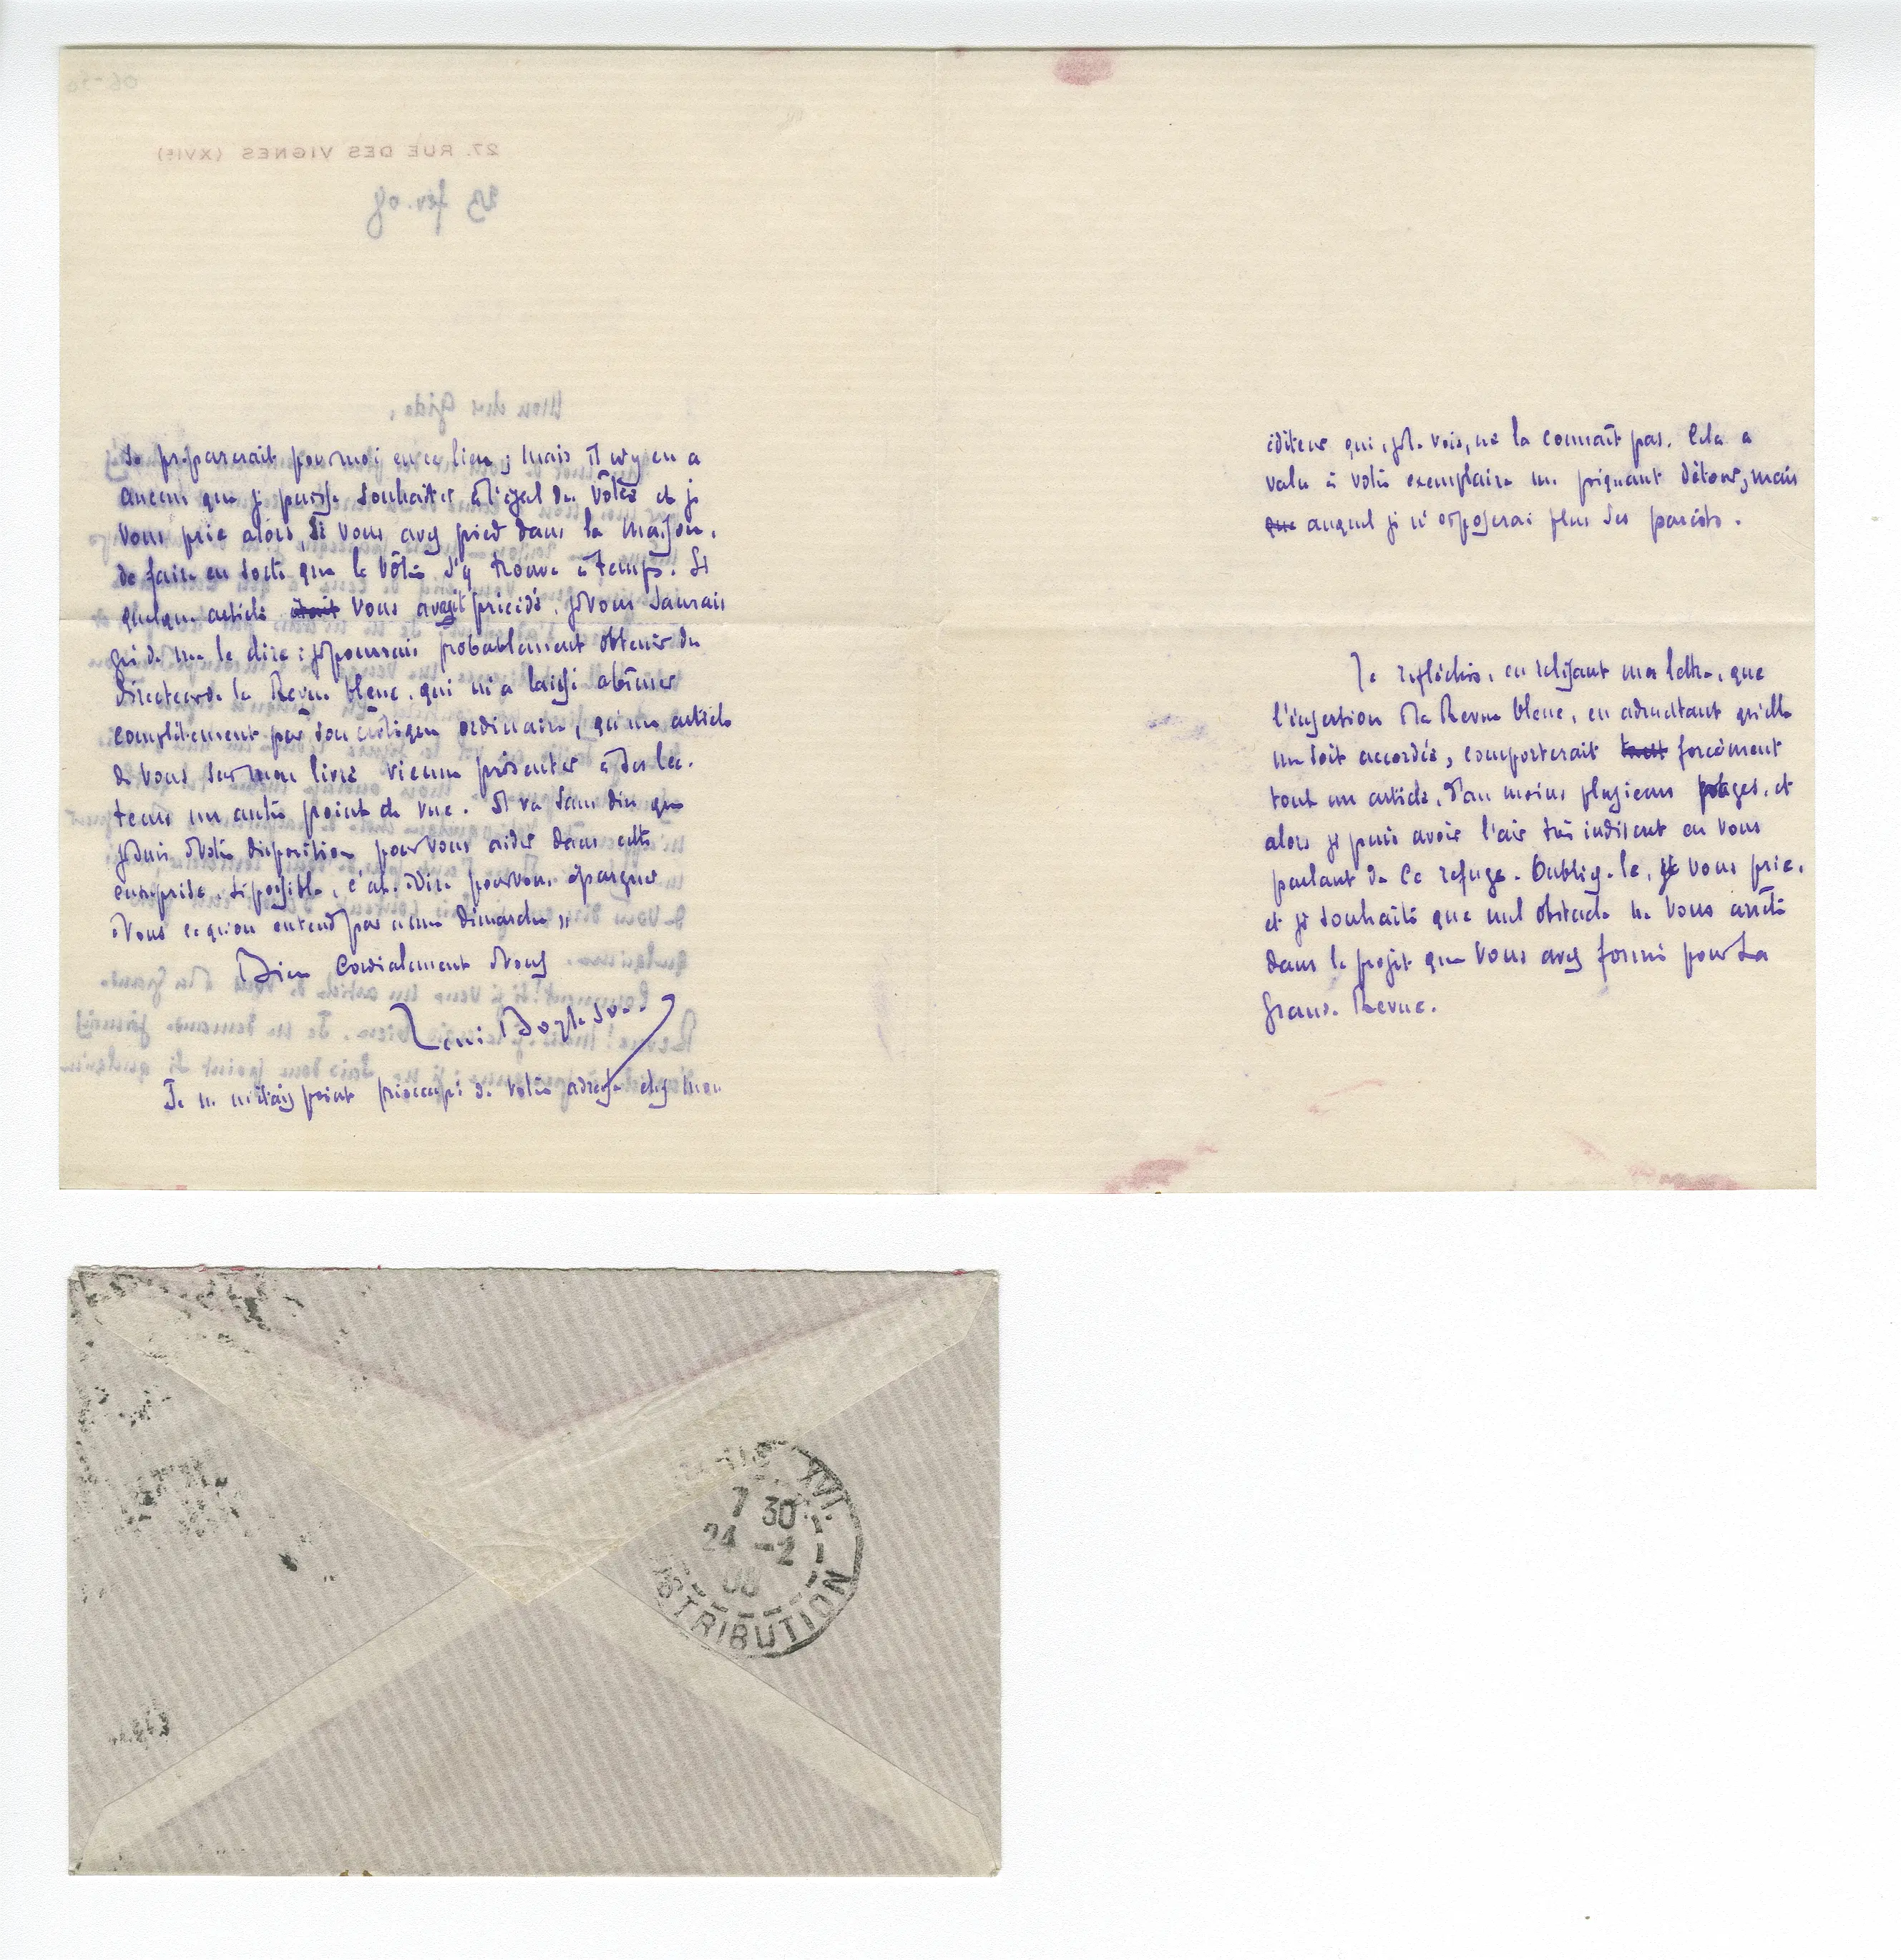 27. RUE DES VIGNES (XVIe)
23 fév. 08
Mon cher Gide,
se préparerait pour moi en ce lieu ; mais il n'y en a
aucun que je puisse souhaiter à l'égal du vôtre et je
vous prie alors, si vous avez pied dans la maison,
de faire en sorte que le vôtre s'y trouve à temps. Si
quelque article était vous avait précédé, je vous saurais
gré de me le dire : je pourrais probablement obtenir du
directeur de la Revue bleue, qui m'a laissé abîmer
complètement par son critique ordinaire, qu'un article
de vous sur mon livre vienne présenter à ses lec-
teurs un autre point de vue. Il va sans dire que
je suis à votre disposition pour vous aider dans cette
entreprise, si possible, c'est-à-dire pour vous épargner
à vous ce qu'on entend par « une démarche »
Bien cordialement à vous
René Boylesve
Je ne m'étais point préoccupé de votre adresse chez mon
éditeur qui, je le vois, ne la connaît pas. Cela a
valu à votre exemplaire un piquant détour, mais
que auquel je n'exposerai plus ses pareils.
Je réfléchis, en relisant ma lettre, que
l'insertion à la Revue bleue, en admettant qu'elle
me soit accordée, comporterait tout forcément
tout un article, d'au moins plusieurs pages, et
alors je puis avoir l'air très indiscret en vous
parlant de ce refuge. Oubliez-le, je vous prie,
et je souhaite que nul obstacle ne vous arrête
dans le projet que vous avez formé pour La
Grande Revue.
XVI
7 30
24 -2
08
DISTRIBUTION